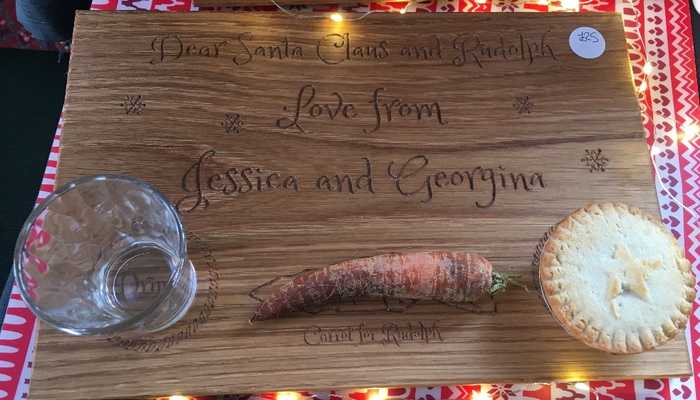 Dear Santa Claus and Rudolph
£25
Love from
Jessica and Georgina
Carrot for Rudolph